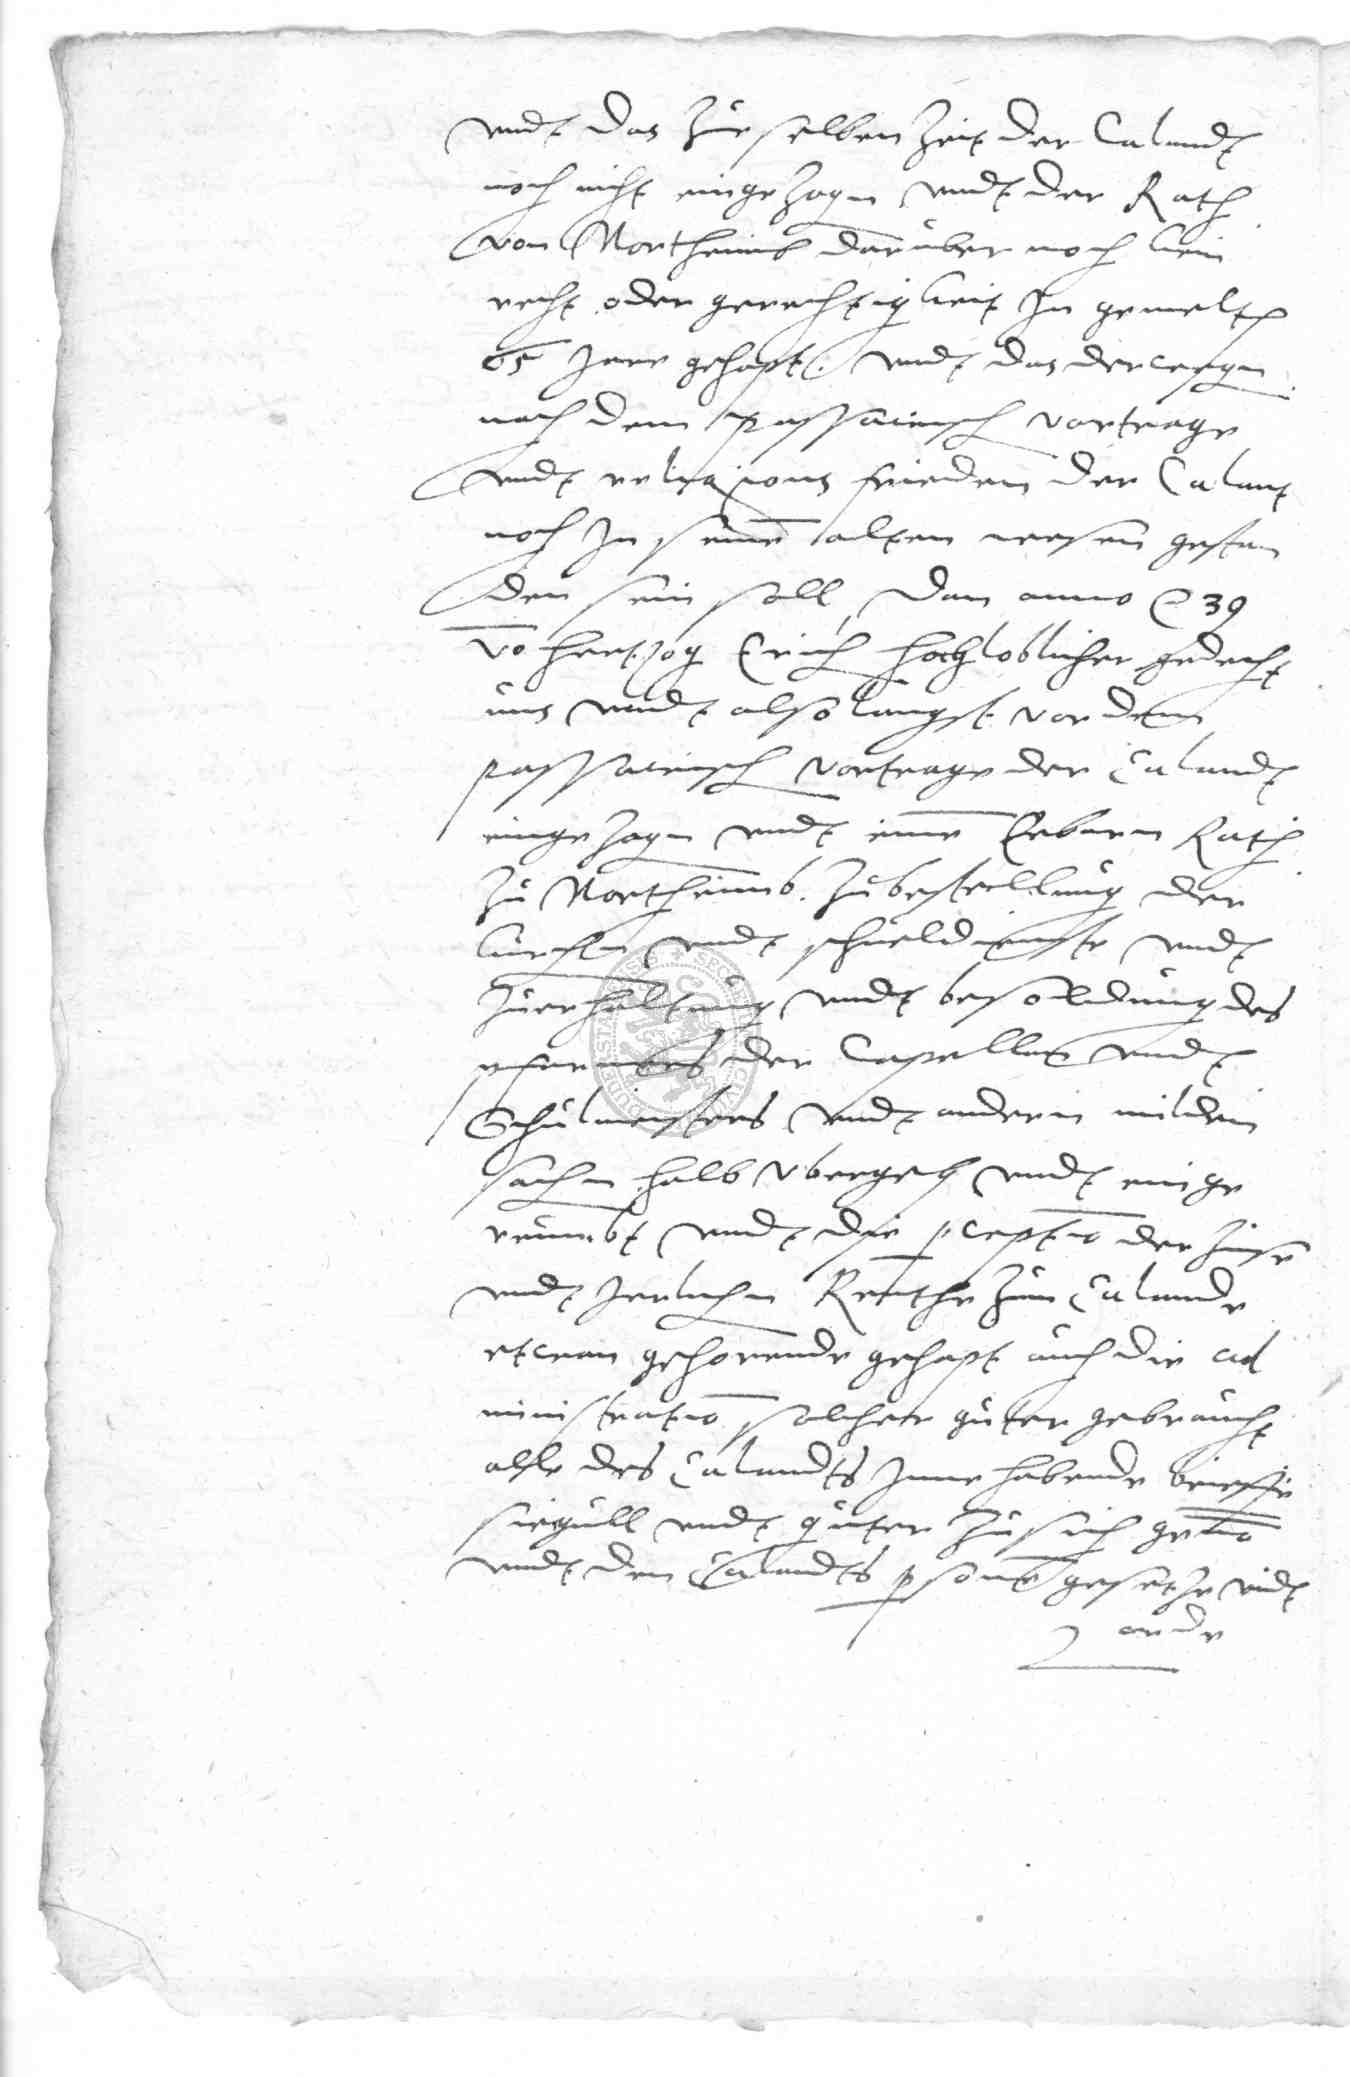 undt das zur selben Zeit der Calandt
noch nicht eingezogen undt der Rath
von Northeimb daruber noch kein
recht oder gerechtigkeit In gemelten
65 Jare gehapt. undt das derwegen
nach dem passawisch vortrage
undt religions frieden der Calant
noch In seinē alten wesen gestan
den sein soll, Dan anno 39
vō hertzog Erich hochloblicher gedecht
nus undt also langst vor dem
passawisch vortrage der Calandt
eingezogen undt einē Erbarn Rath
zu Northeimb. zu bestellung der
kirchen undt schueldienste undt
zu erhaltung undt besoldung des
pfarners der Capellen undt
Schulmeisters undt andern milden
sachen halb vbergeben undt einge
reumbt undt die pceptiō der Zinse
undt Jerlichen Renthe zum Calande
etwan gehorende gehapt auch die ad
ministratiō solcher guter gebraucht
alle des Calandts Inne habende brieffe
siegull undt guter zu sich genō
undt den Calandts psonē gesetze undt